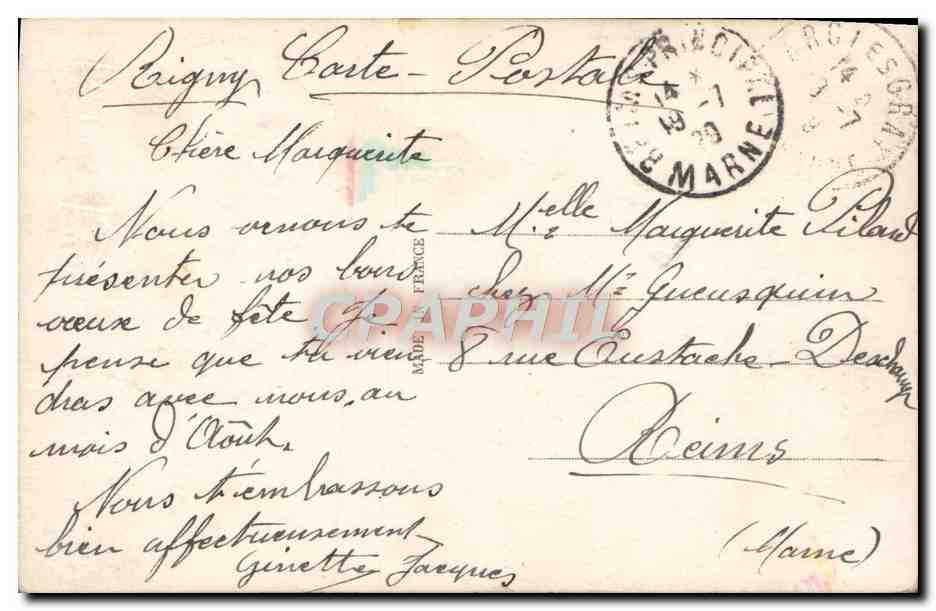 Rigny Carte-Postale
Chère Marguerite
Nous venons te
présenter nos bons
vœux de fête Je
pense que tu vien
dras avec nous, au
mois d'Août.
Nous t'embrassons
bien affectueusement
Ginette Jacques
MADE IN FRANCE
Melle Marguerite Pilard
chez Mr Gueusquin
8 rue Eustache-Deschamps
Reims
(Marne)
REIMS PRINCIPAL
14 *
18 -7
29
MARNE
14
-7
CPAPHIL